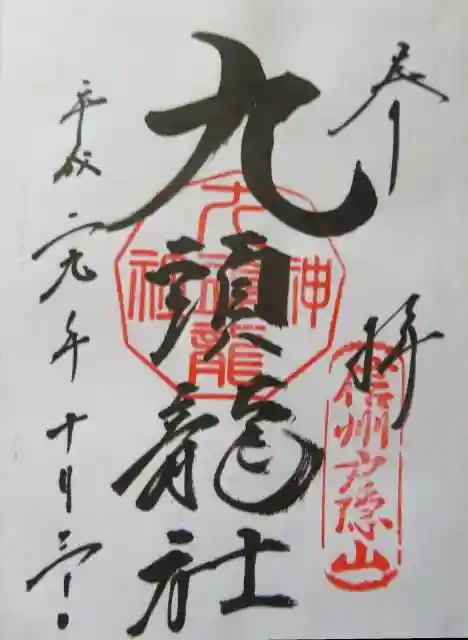 奉拝
信州戸隠山
九頭龍社
九頭龍神社
平成二九年十月三日